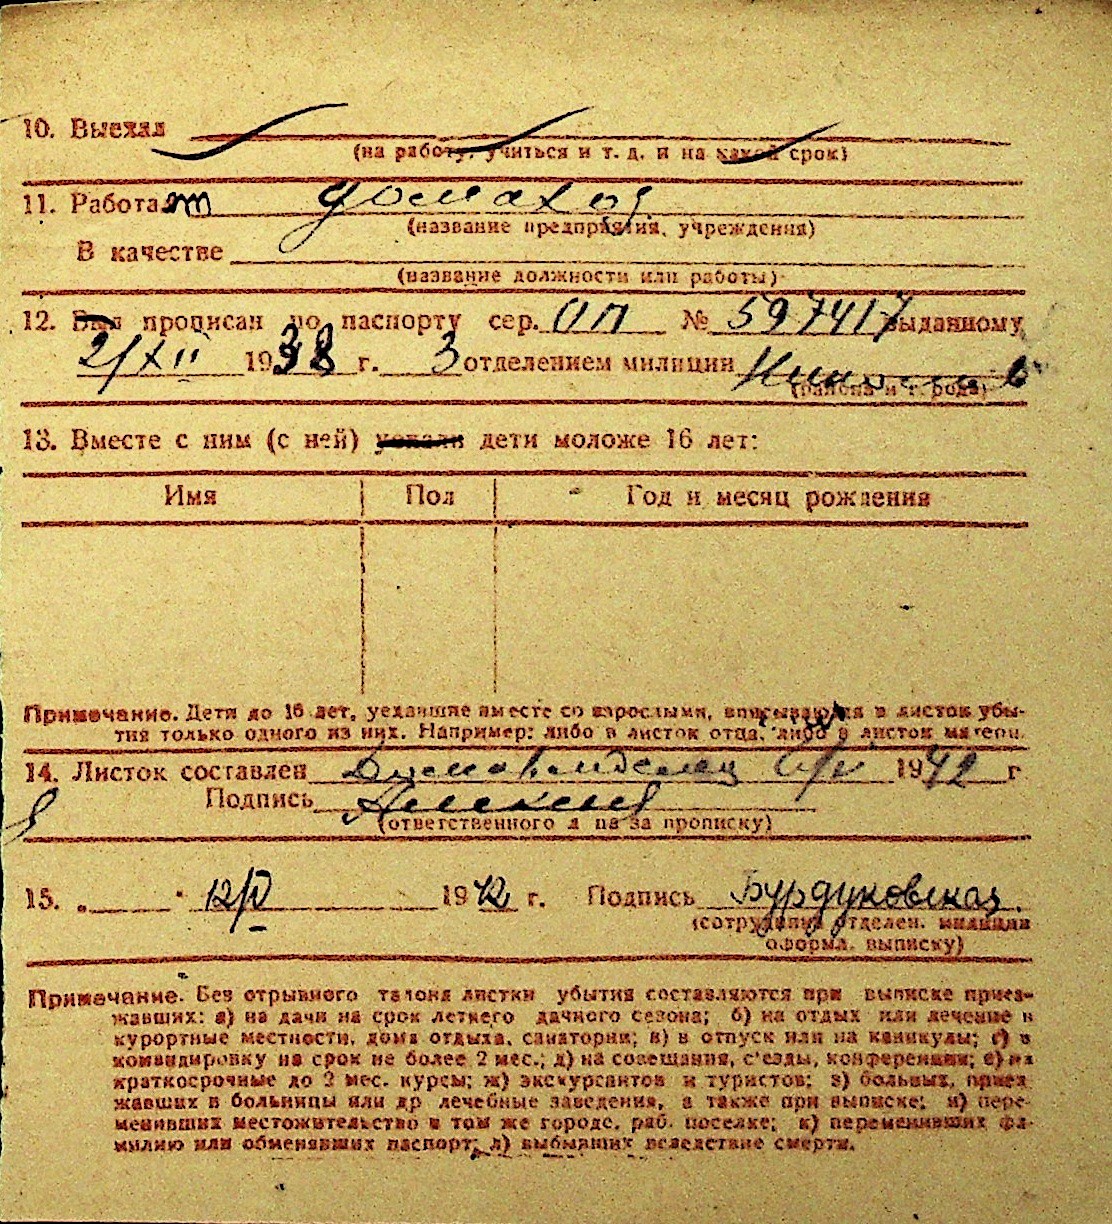 10. Выехал
(на работу, учиться и т. д. и на какой срок)
11. Работает домахоз.
(название предприятия, учреждения)
В качестве
(название должности или работы)
12. Был прописан по паспорту сер. ОП № 597417 выданному
2/XII 1938 г. 3 отделением милиции
(района и города)
13. Вместе с ним (с ней) уехали дети моложе 16 лет:
Имя Пол Год и месяц рождения
Примечание. Дети до 16 лет, уехавшие вместе со взрослыми, вписываются в листок убы-
тия только одного из них. Например: либо в листок отца, либо в листок матери.
14. Листок составлен 1942 г
Подпись
(ответственного за прописку)
15. „ " 12/V 1942 г. Подпись Бурдуковская
(сотрудника отделен. милиции
оформл. выписку)
Примечание. Без отрывного талона листки убытия составляются при выписке приез-
жавших: а) на дачи на срок летнего дачного сезона; б) на отдых или лечение в
курортные местности, дома отдыха, санатории; в) в отпуск или на каникулы; г) в
командировку на срок не более 2 мес.; д) на совещания, с'езды, конференции; е) на
краткосрочные до 2 мес. курсы; ж) экскурсантов и туристов; з) больных, приез-
жавших в больницы или др лечебные заведения, а также при выписке; и) пере-
менивших местожительство в том же городе, раб. поселке; к) переменивших фа-
милию или обменявших паспорт; л) выбывших вследствие смерти.